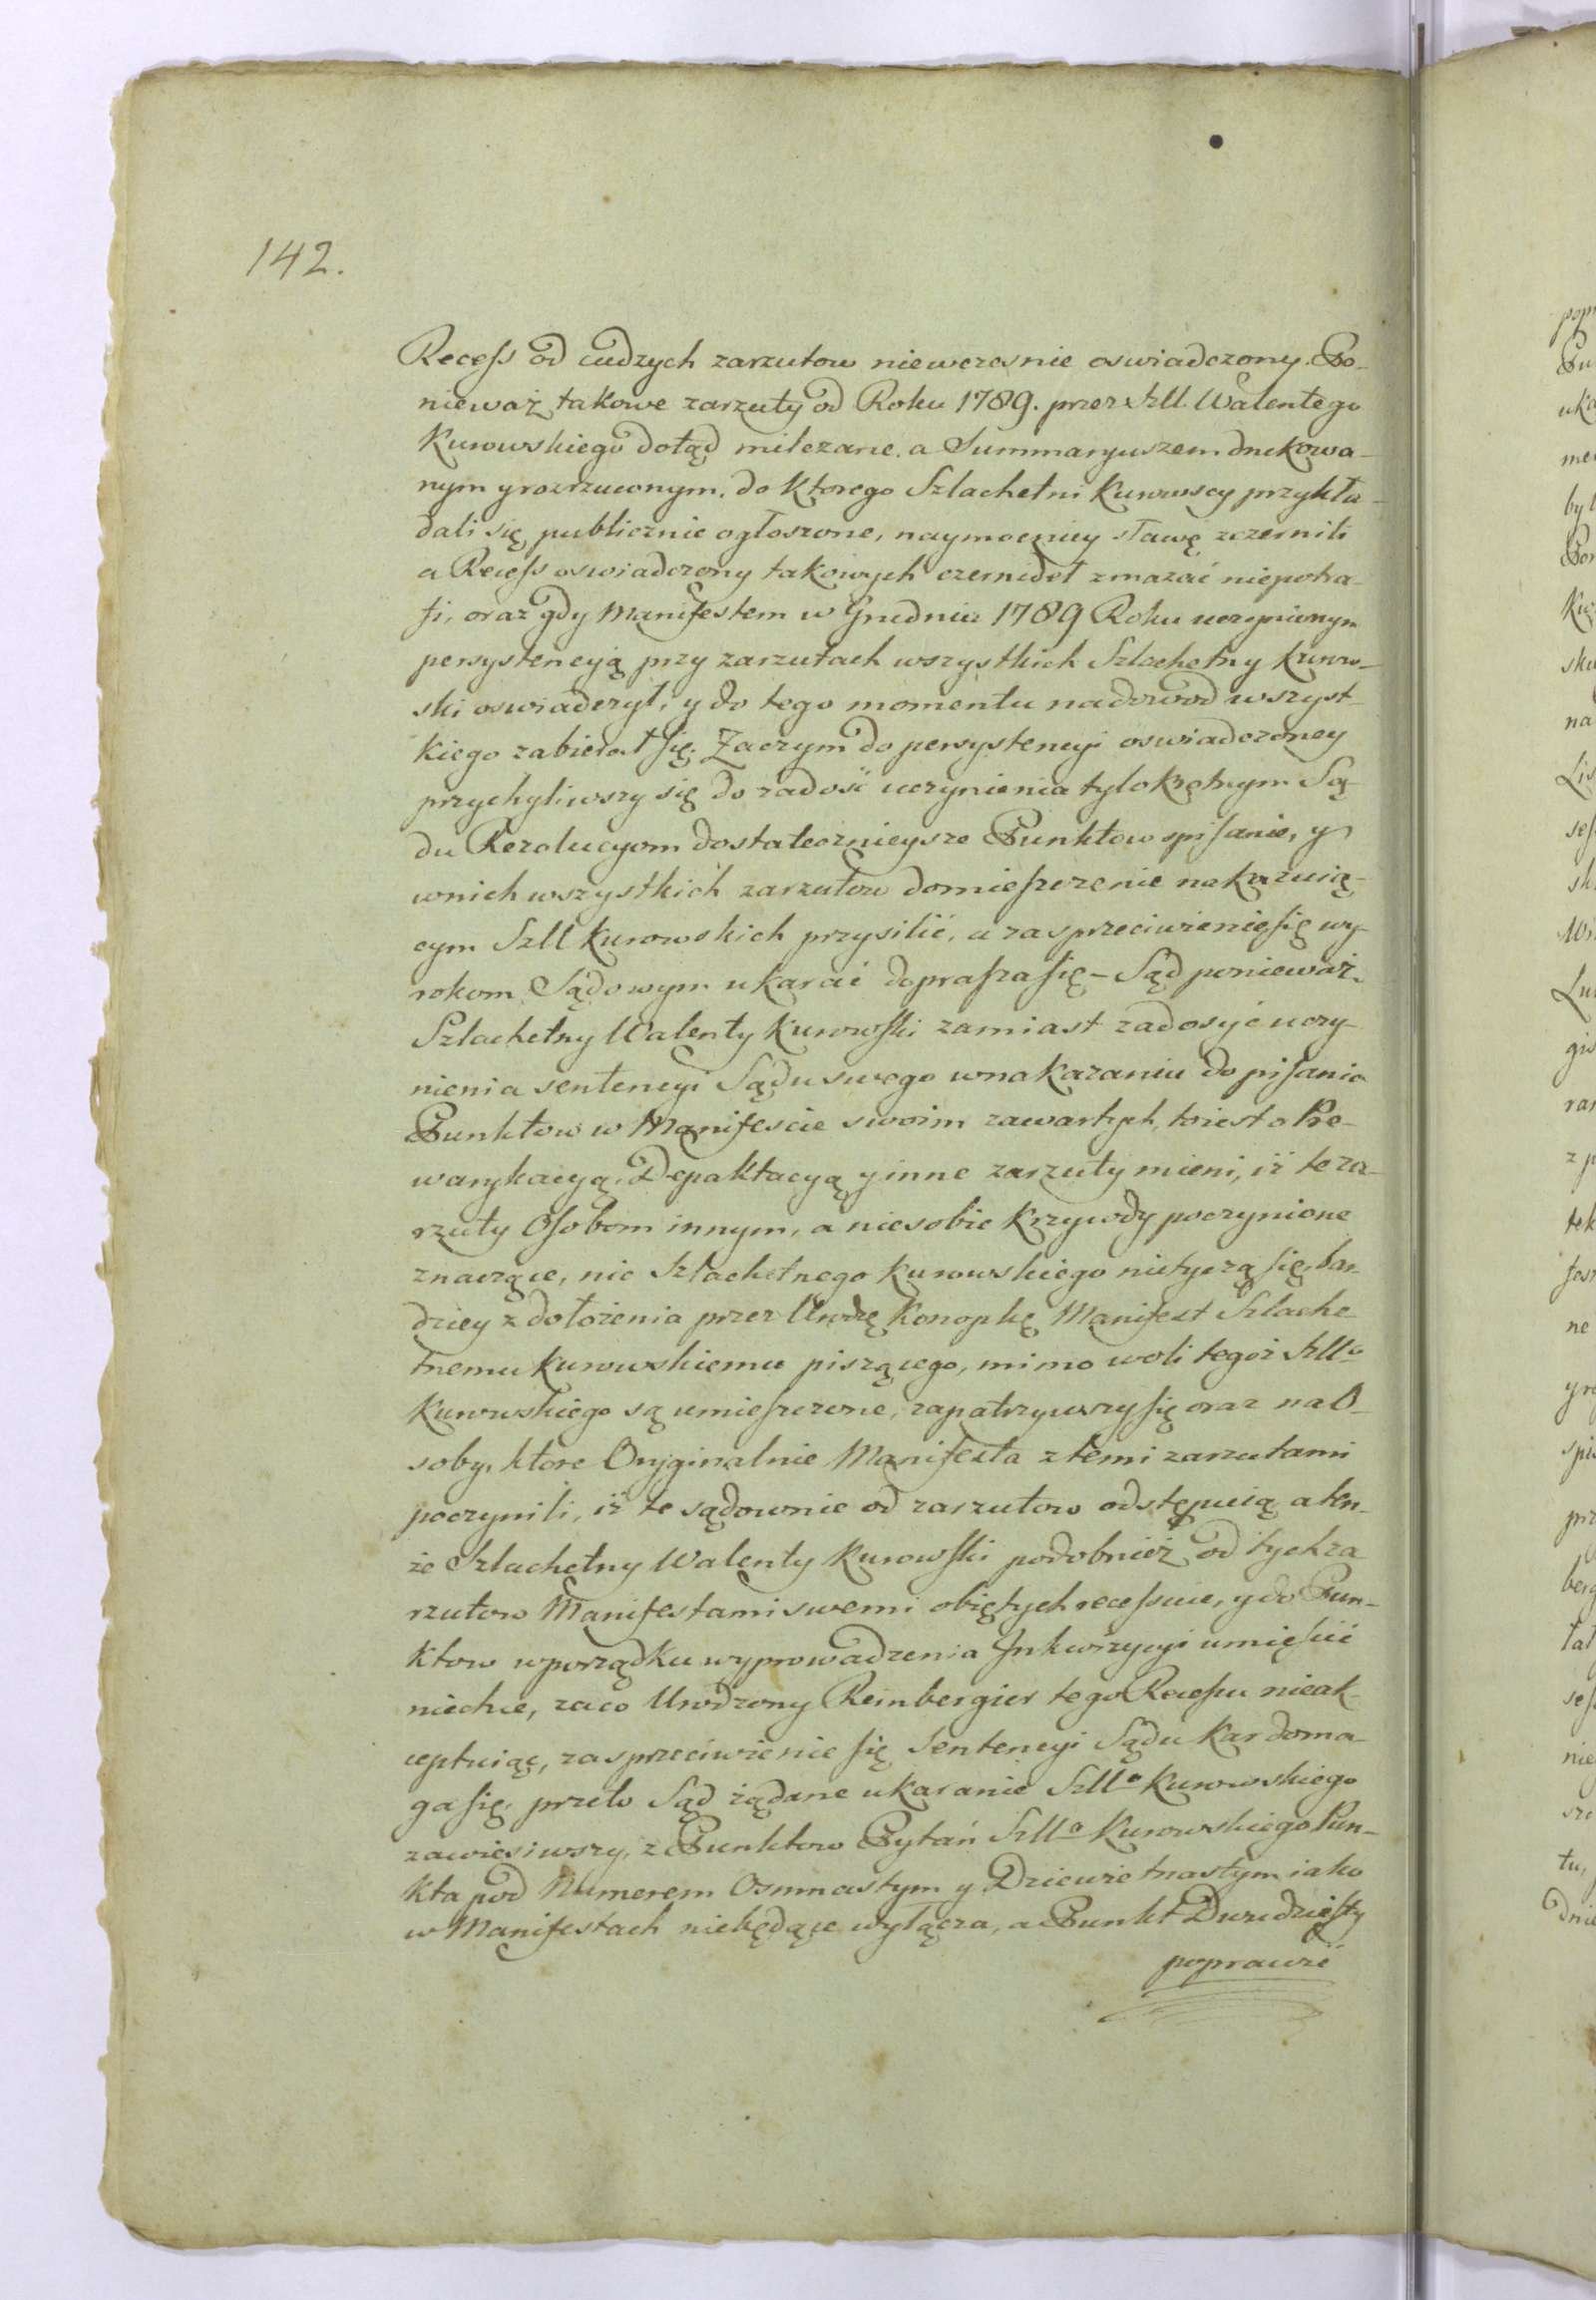 142.
Recess od cudzych zarzutow niewczesnie oswiadczony. Po-
nieważ takowe zarzuty od Roku 1789. przez Szll. Walentego
Kurowskiego dotąd milczane. a Summaryuszem drukowa-
nym y rozrzuconym, do ktorego Szlachetni Kurowscy przykła-
dali się, publicznie ogłoszone, naymocniey sławę zczernili
a Recess oswiadczony takowych czernideł zmazać niepotra-
fi, oraz gdy Manifestem w Grudniu 1789 Roku uczynionym
persystencyją przy zarzutach wszystkich Szlachetny Kurow-
ski oswiadczył, y do tego momentu na dowod wszyst-
kiego zabierał się. Zaczym do persystencyi oswiadczoney
przychyliwszy się do zadość uczynienia tylokrotnym Są-
du Rezolucyom dostatecznieysze Punktow spisanie, y
wnich wszystkich zarzutow domieszczenie nakazuią-
cym Szll Kurowskich przysilić, a za sprzeciwienie się wy-
rokom Sądowym ukarać doprasza się – Sąd ponieważ
Szlachetny Walenty Kurowski zamiast zadosyć uczy-
nienia sentencyi Sądu swego wnakazaniu do pisania
Punktow w Manifescie swoim zawartych, toiest o Pre-
warykacyą, Depaktacyą y inne zarzuty mieni, iż te za-
rzuty Osobom innym, a niesobie Krzywdy poczynione
znaczące, nic Szlachetnego Kurowskiego nietyczą się, bar-
dziey z dołożenia przez Urodzę Konopkę Manifest Szlache
tnemu Kurowskiemu piszącego, mimo woli tegoż Szllo
Kurowskiego są umieszczone, zapatrzywszy się oraz na O-
soby, ktore Oryginalnie Manifesta z temi zarzutami
poczynili, iż te sądownie od zarzutow odstępuią a ten-
że Szlachetny Walenty Kurowski podobnież od tych za
rzutow Manifestami swemi obiętych recessuie, y do Pun-
ktow wporządku wyprowadzenia Inkwizycyi umieścić
niechce, zaco Urodzony Reinbergier tego Recessu nieak-
ceptuiąc, za sprzeciwienie się Sentencyi Sądu kar doma-
ga się, przeto Sąd żądane ukaranie Szllo Kurowskiego
zawiesiwszy, z Punktow Pytań Szllo Kurowskiego Pun-
kta pod Numerem Osmnastym y Dziewietnastym iako
w Manifestach niebędące wyłącza, a Punkt Dwudziesty
poprawić